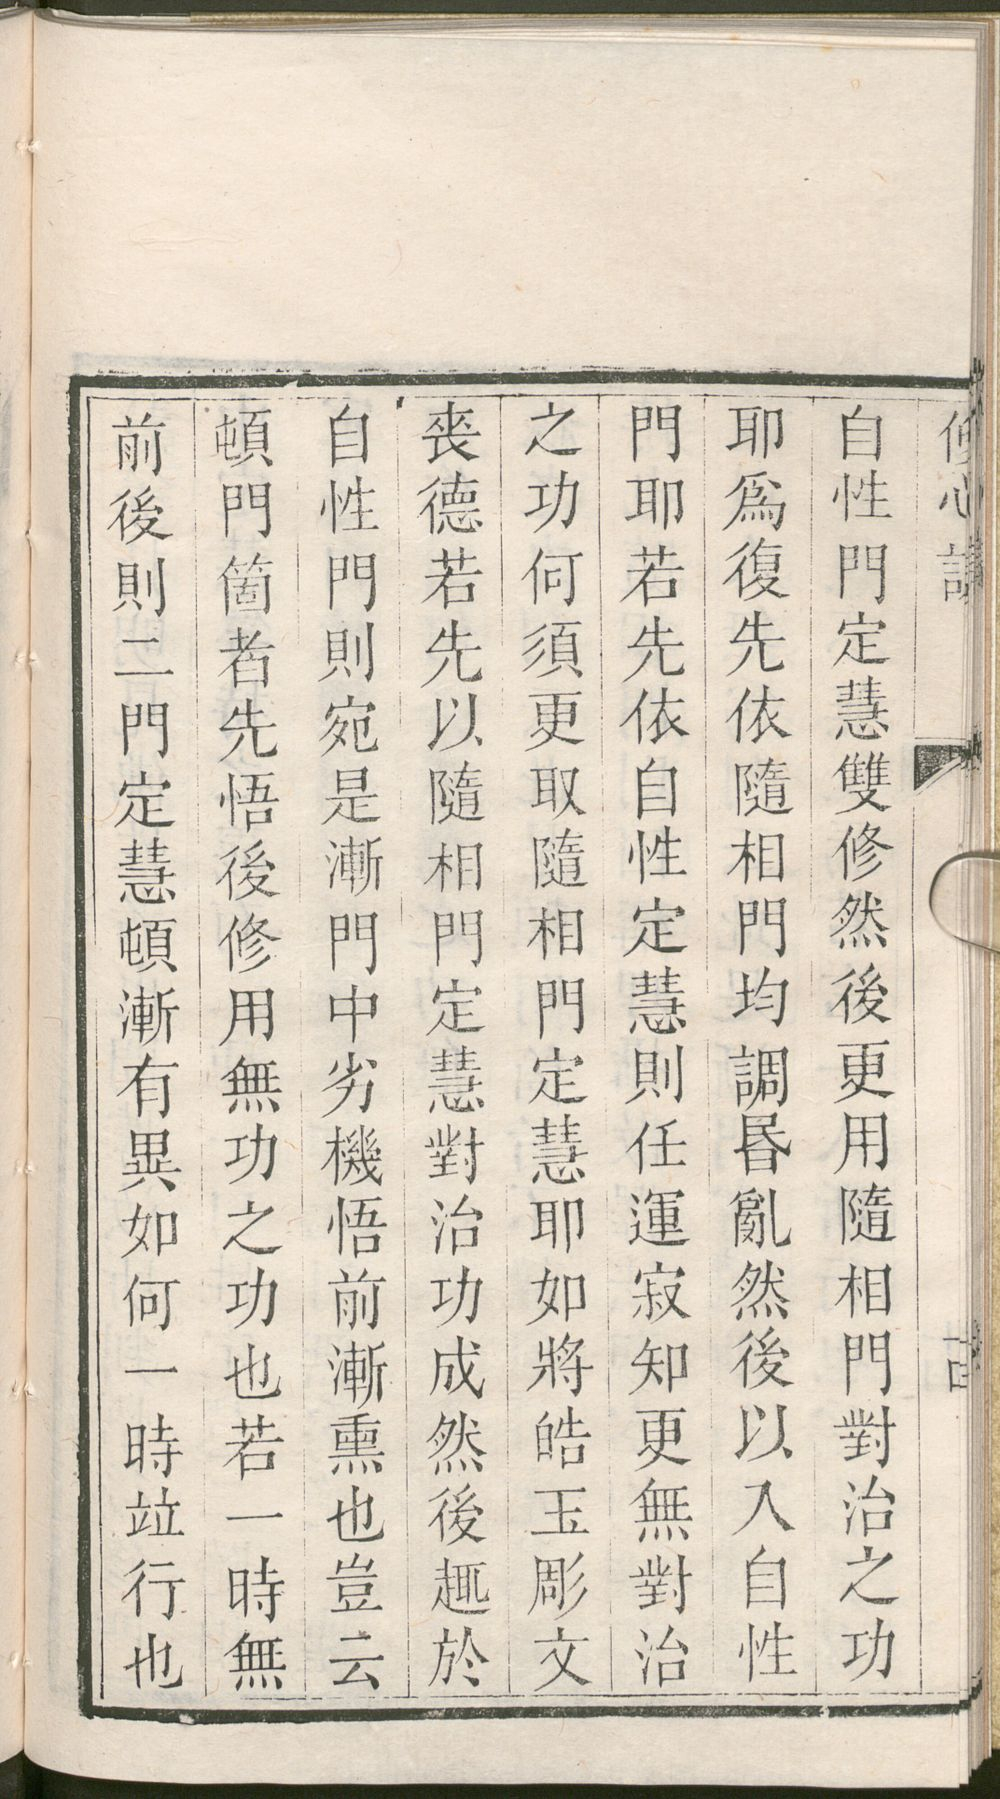 修心訣
自性門定慧雙修然後更用隨相門對治之功
耶爲復先依隨相門均調昬亂然後以入自性
門耶若先依自性定慧則任運寂知更無對治
之功何須更取隨相門定慧耶如將皓玉彫文
喪德若先以隨相門定慧對治功成然後趣於
自性門則宛是漸門中劣機悟前漸熏也豈云
頓門箇者先悟後修用無功之功也若一時無
前後則二門定慧頓漸有異如何一時竝行也